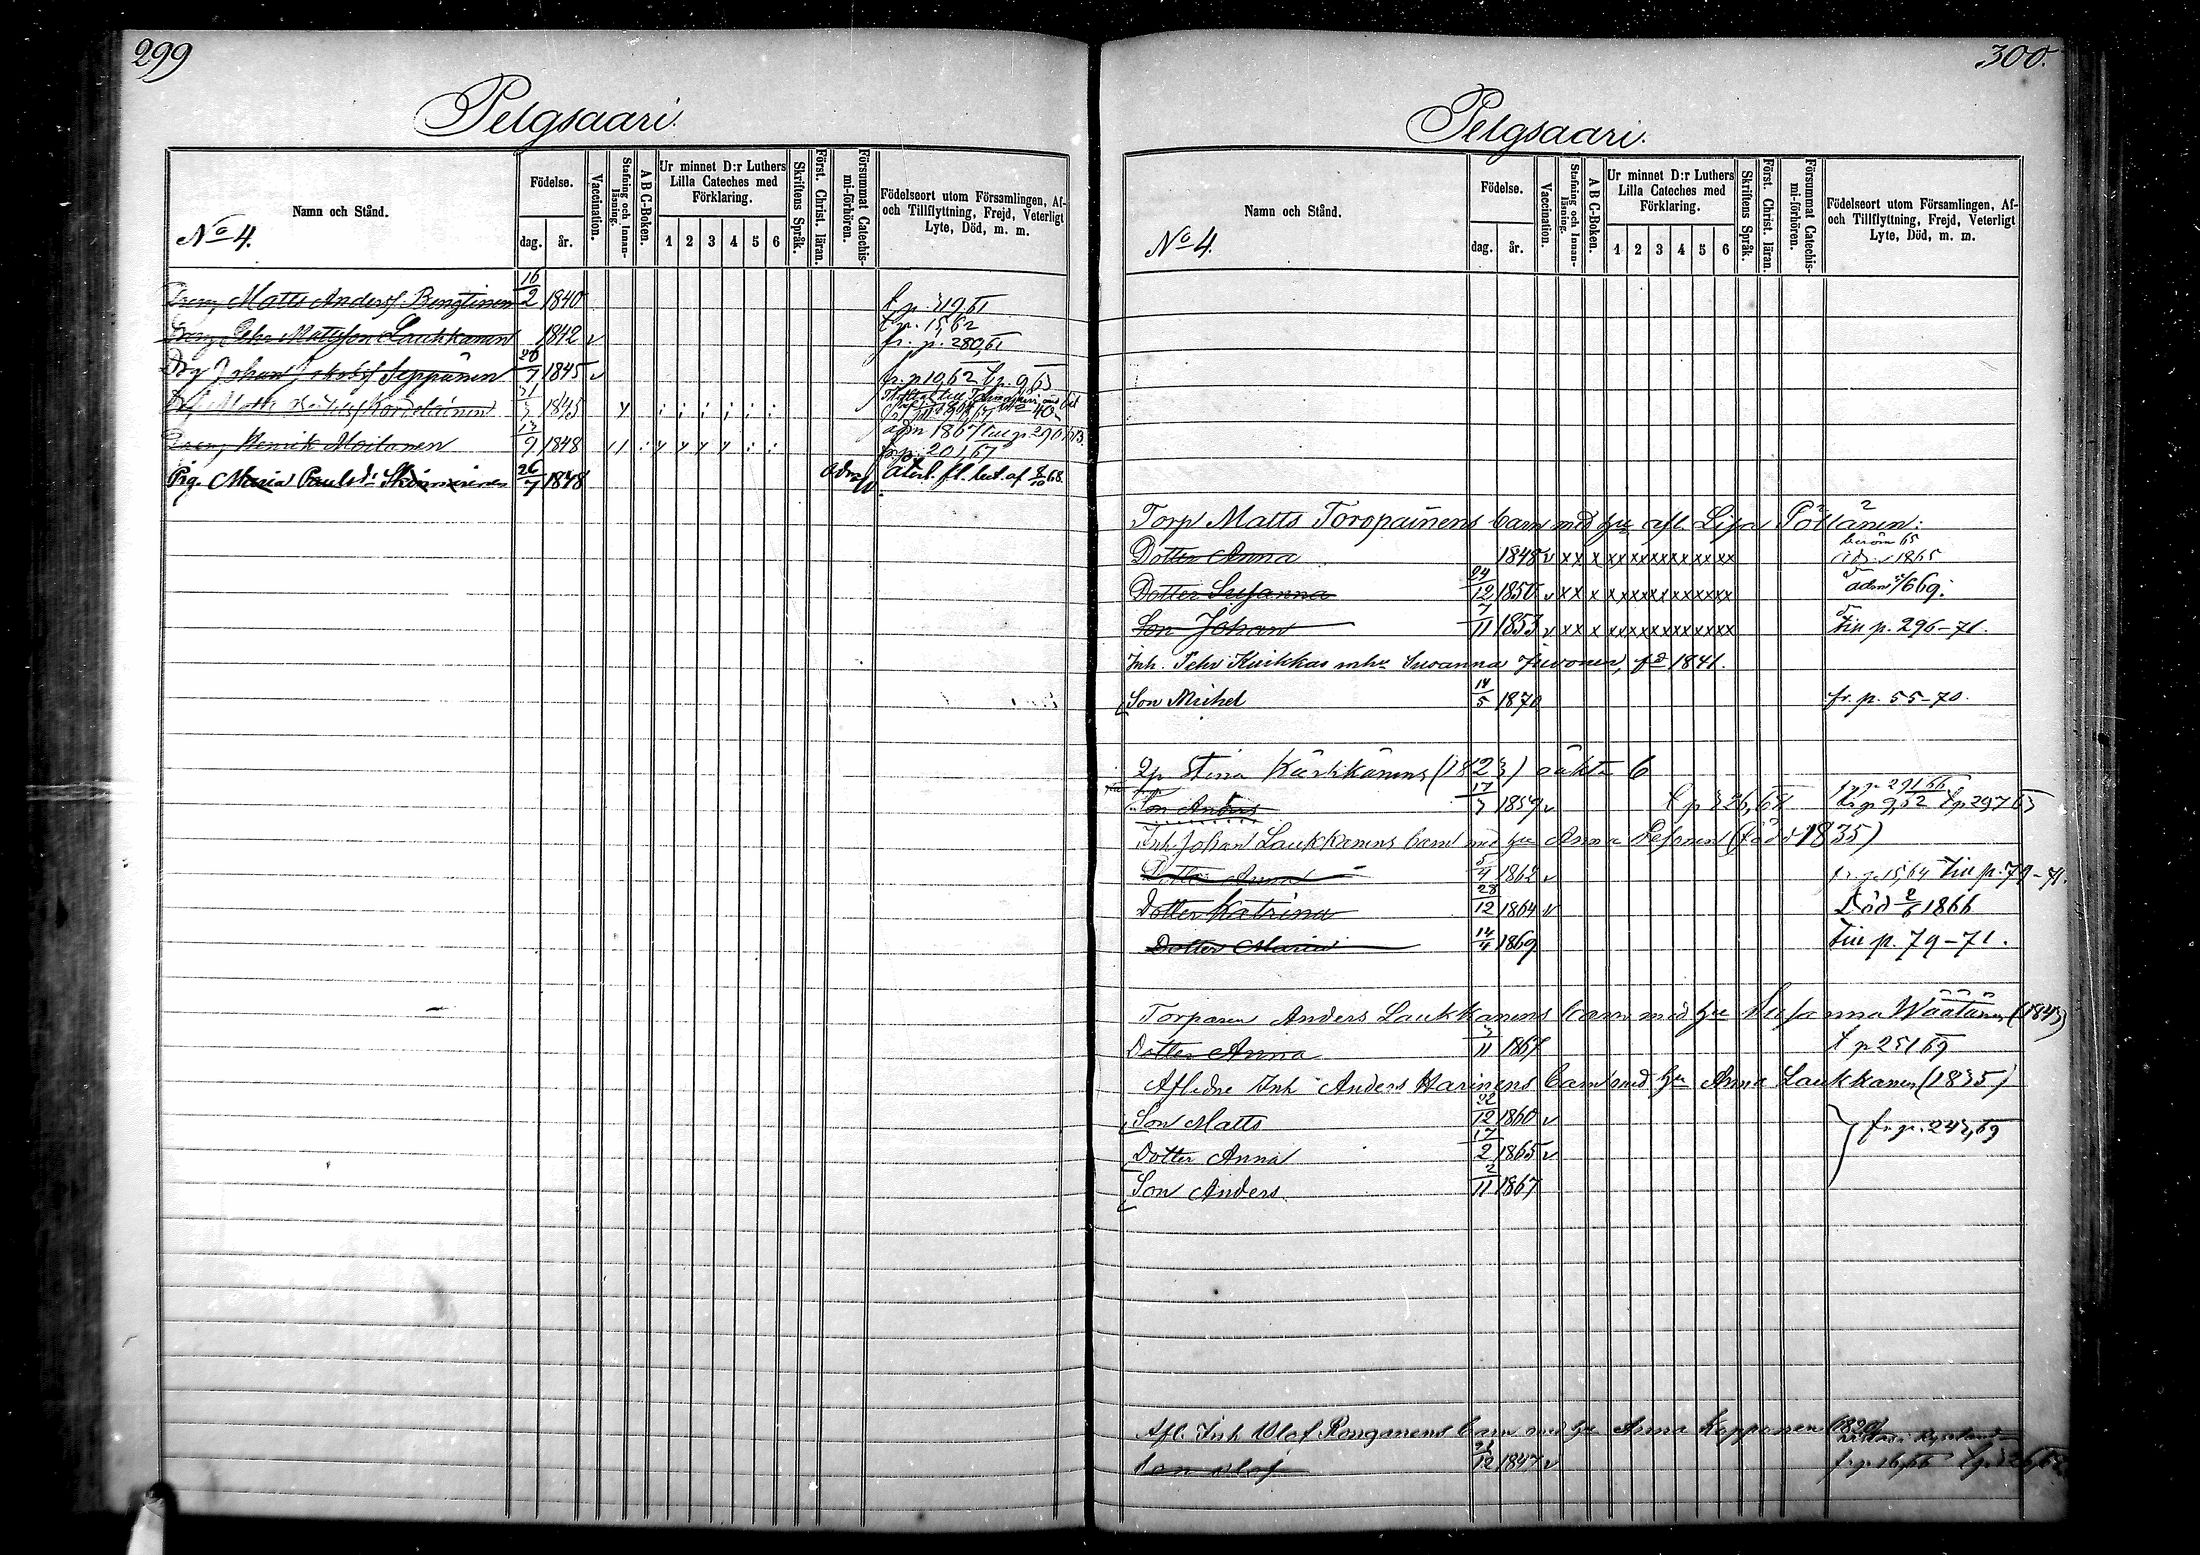 299
Pelgsaari.
Namn och Stånd.
No 4.
Födelse.
dag. år.
Vaccination.
Stafning och Innanläsning.
A B C-Boken.
Ur minnet D:r Luthers
Lilla Cateches med
Förklaring.
1 2 3 4 5 6
Skriftens Språk.
Först. Christ. läran.
Försummat Catechismi-förhören.
Födelseort utom Församlingen, Af-
och Tillflyttning, Frejd, Veterligt
Lyte, Död, m. m.
Dreng Matts Andersf. Bengtinen 16/2 1840 t. p. 319,61
t. p. 15,62
Dreng Pehr Mattsson Laukkanen 1842 v fr. p. 280,61
Drg Johan Jakobsf Seppänen 26/7 1845 v fr. p 19,62 t. p. 9,63
Matts 1843
adm 1867
Dreng Henrik Moilanen 13/9 1848 fr. p. 201,67
Pig. Maria Paulsd:r 26/7 1848 Aterl. fl. bet. af 8/10 68.
300.
Pelgsaari.
Namn och Stånd.
No 4.
Födelse.
dag. år.
Vaccination.
Stafning och Innanläsning.
A B C-Boken.
Ur minnet D:r Luthers
Lilla Cateches med
Förklaring.
1 2 3 4 5 6
Skriftens Språk.
Först. Christ. läran.
Försummat Catechismi-förhören.
Födelseort utom Församlingen, Af-
och Tillflyttning, Frejd, Veterligt
Lyte, Död, m. m.
Torp Matts Toropainens barn med hu afl. Lisa Pöllänen:
Dotter Anna 1848 v xx x xx xx xx xx xx xx 1865
Dotter Susanna 24/12 1850 v xx x xx xx xx xx xx xx
Son Johan 7/11 1853 v xx x xx xx xx xx xx xx Till p. 296-71.
Inh. Pehr Kuikkas m hu Susanna Juvonen, fd 1841.
Son Michel 14/5 1870 fr. p. 55-70.
Stina Kärkkänens (1823) oäkta
Son Anders 17/3 1859 v
Inh Johan Laukkanens barn med hu Anna (född 1835)
Dotter Anna 5/4 1862 v fr. p. 15,64 Till p. 79-71.
Dotter Katrina 28/12 1864 v Död 2/6 1866
Dotter Maria 14/4 1869 Till p. 79-71.
Torparen Anders Laukkanens barn med hu Susanna Wäätänen (1843)
Dotter Anna 3/11 1867 t p 251 69
Aflidne Inh Anders Harinens barn med hu Anna Laukkanen (1835)
Son Matts 22/12 1860 v fr. p. 243,69
Dotter Anna 17/2 1865 v
Son Anders 2/11 1867
Afl. Inh Olof Ronganens barn med hu Anna Kapponen (1820)
Son Olof 21/12 1847 v fr. p. 16,66